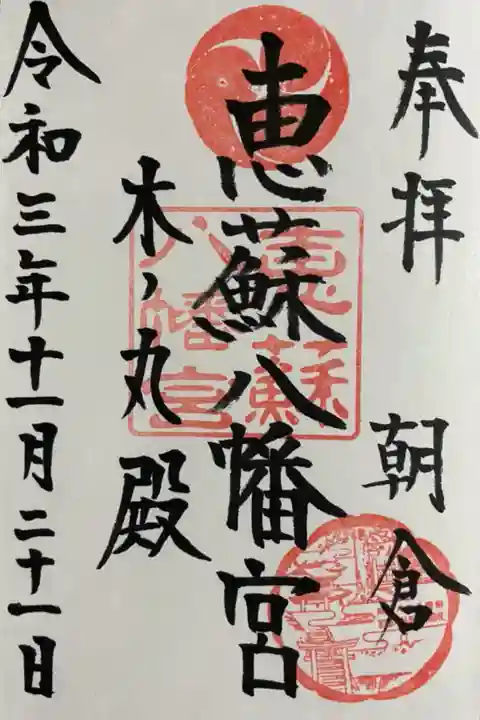 奉拝
朝倉
恵蘇八幡宮
恵蘇
八幡宮
木ノ丸殿
令和三年十一月二十一日